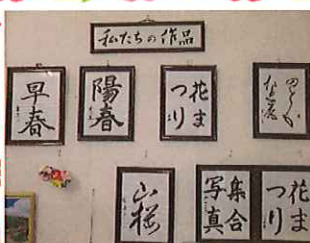 私たちの作品
早春
陽春
花ま
つり
山桜
集合
写真
花ま
つり